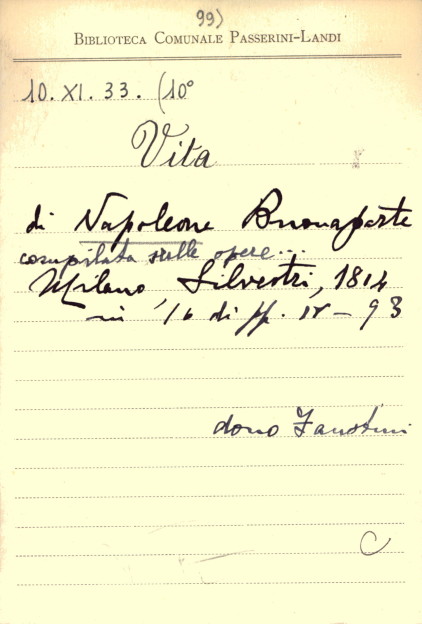 99)
BIBLIOTECA COMUNALE PASSERINI-LANDI
10. XI. 33. (10°
Vita
di Napoleone Buonaparte
compilata sulle opere...
Milano Silvestri, 1814
in '16 di pp. IV - 93
dono Faustini
C